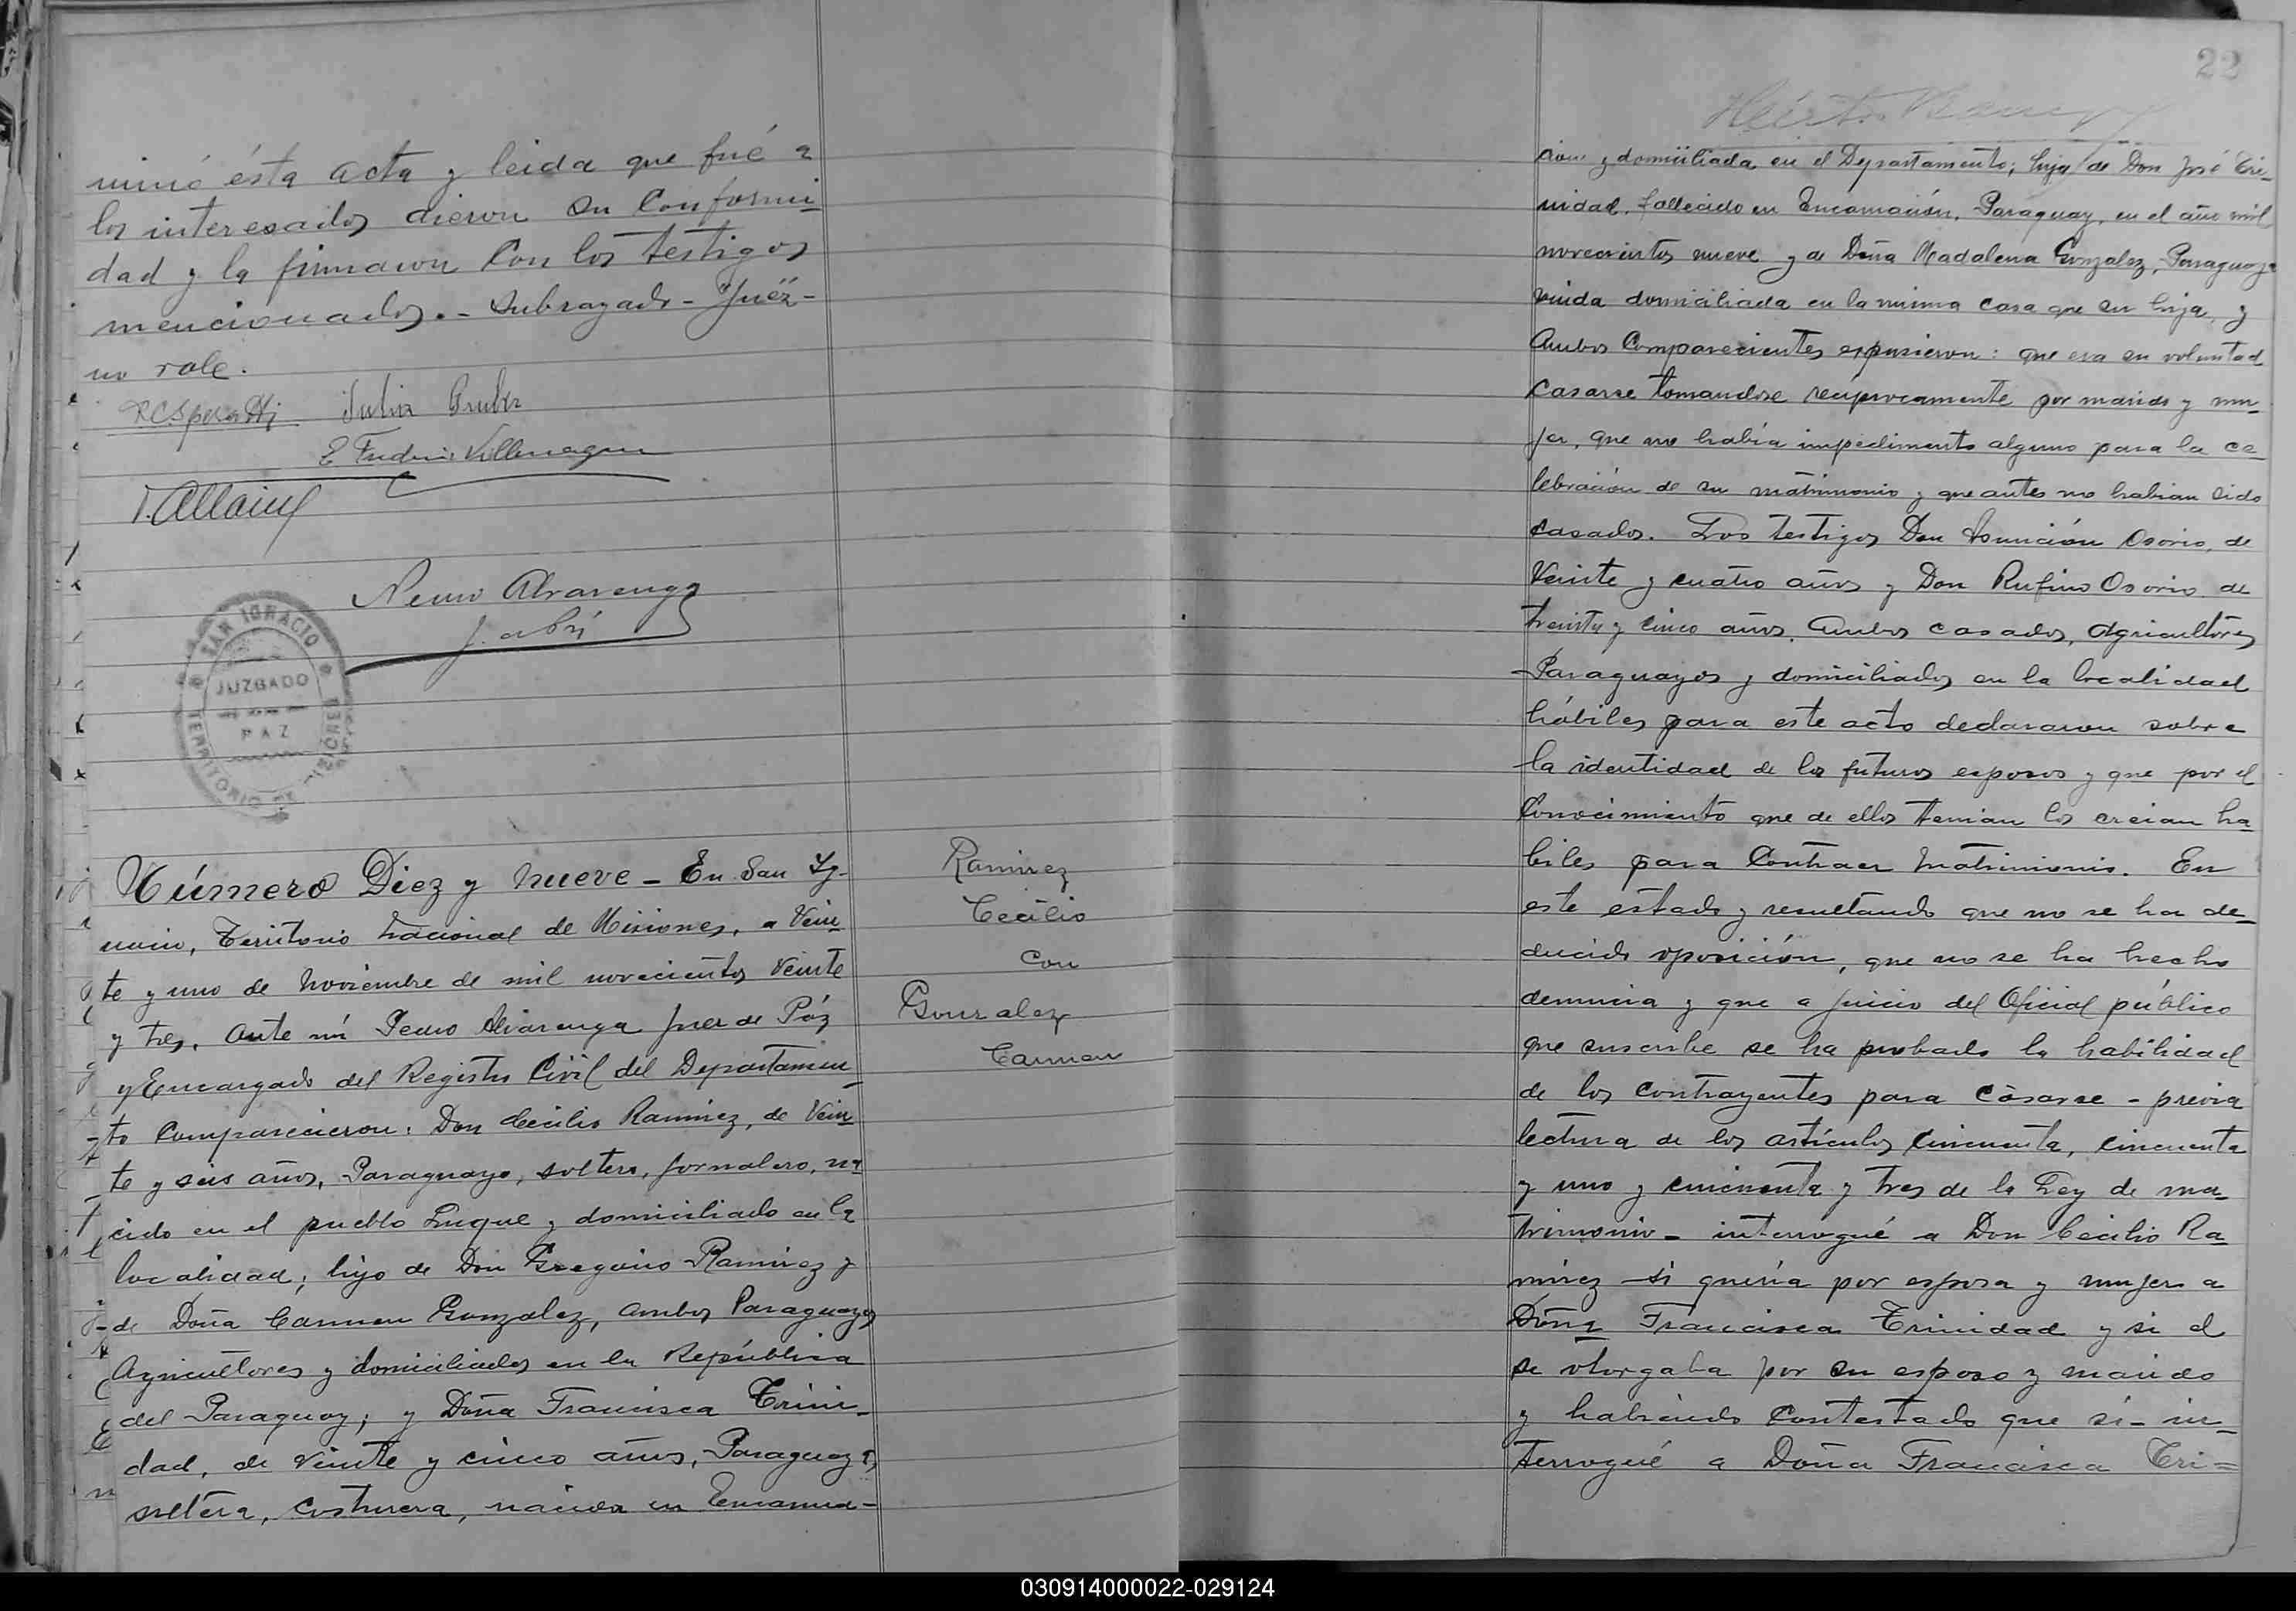 minó ésta acta y leida que fué a
los interesados dieron su Conformi-
dad y la firmaron Con los testigos
mencionados. - Subrayado - Juez -
no vale.
Julia
E Villanueva
Pedro Alvarenga
J. de Paz
SAN IGNACIO
JUZGADO
DE
PAZ
TERRITORIO DE MISIONES
Número Diez y nueve - En San Ig-
nacio, Territorio Nacional de Misiones, a Vein-
te y uno de Noviembre de mil novecientos Veinte
y tres, Ante mí Pedro Alvarenga Juez de Páz
y Encargado del Registro Civil del Departamen-
to Comparecieron: Don Cecilio Ramirez, de Vein-
te y seis años, Paraguayo, soltero, jornalero, na-
cido en el pueblo Luque y domiciliado en la
localidad; hijo de Don Gregorio Ramirez y
de Doña Carmen Gonzalez, ambos Paraguayos
Agricultores y domiciliados en la República
del Paraguay; y Doña Francisca Trini-
dad, de veinte y cinco años, Paraguaya,
soltera, costurera, nacida en Encarna-
Ramirez
Cecilio
Con
Gonzalez
Carmen
22
cion y domiciliada en el Departamento; hija de Don José Tri-
nidad, fallecido en Encarnación, Paraguay, en el año mil
novecientos nueve y de Doña Madalena Gonzalez, Paraguaya
viuda domiciliada en la misma casa que su hija, y
Ambos Comparecientes expusieron: que era su voluntad
Casarse tomandose reciprocamente por marido y mu-
jer, que no había impedimento alguno para la ce-
lebración de su matrimonio y que antes no habian sido
casados. Los testigos Don Asunción Osorio, de
Veinte y cuatro años y Don Rufino Osorio de
treinta y cinco años, Ambos casados, Agricultores
Paraguayos y domiciliados en la localidad
hábiles para este acto declararon sobre
la identidad de los futuros esposos y que por el
Conocimiento que de ellos tenian los creian há-
biles para Contraer Matrimonio. En
este estado y resultando que no se ha de-
ducido oposición, que no se ha hecho
denuncia y que a juicio del Oficial público
que suscribe se ha probado la habilidad
de los contrayentes para Casarse - previa
lectura de los artículos cincuenta, cincuenta
y uno y cincuenta y tres de la Ley de ma-
trimonio - interrogué a Don Cecilio Ra-
mirez si quería por esposa y mujer a
Doña Francisca Trinidad y si el
se otorgaba por su esposo y marido
y habiendo Contestado que sí - in-
terrogué a Doña Francisca Tri=
030914000022-029124